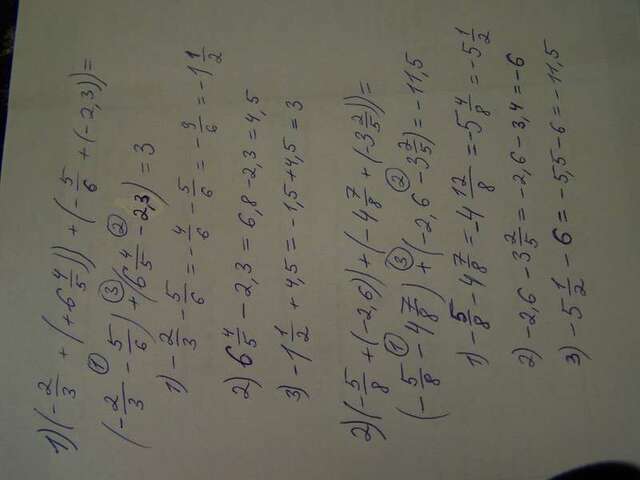 1) (-2/3 + (+6 4/5)) + (-5/6 + (-2,3)) =
(-2/3 - 5/6) + (6 4/5 - 2,3) = 3
① ③ ②
1) -2/3 - 5/6 = -4/6 - 5/6 = -9/6 = -1 1/2
2) 6 4/5 - 2,3 = 6,8 - 2,3 = 4,5
3) -1 1/2 + 4,5 = -1,5 + 4,5 = 3
2) (-5/8 + (-2,6)) + (-4 7/8 + (-3 2/5)) =
① ③ ②
(-5/8 - 4 7/8) + (-2,6 - 3 2/5) = -11,5
1) -5/8 - 4 7/8 = -4 12/8 = -5 4/8 = -5 1/2
2) -2,6 - 3 2/5 = -2,6 - 3,4 = -6
3) -5 1/2 - 6 = -5,5 - 6 = -11,5